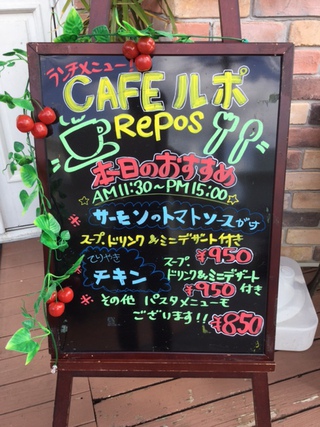 ランチメニュー
CAFE ルポ
Repos
本日のおすすめ
AM 11:30~PM 15:00
サーモンのトマトソースがけ
スープ、ドリンク&ミニデザート付き
¥950
てりやき
チキン
スープ、ドリンク&ミニデザート付き
¥950
※その他 パスタメニューも
ございます!! ¥850